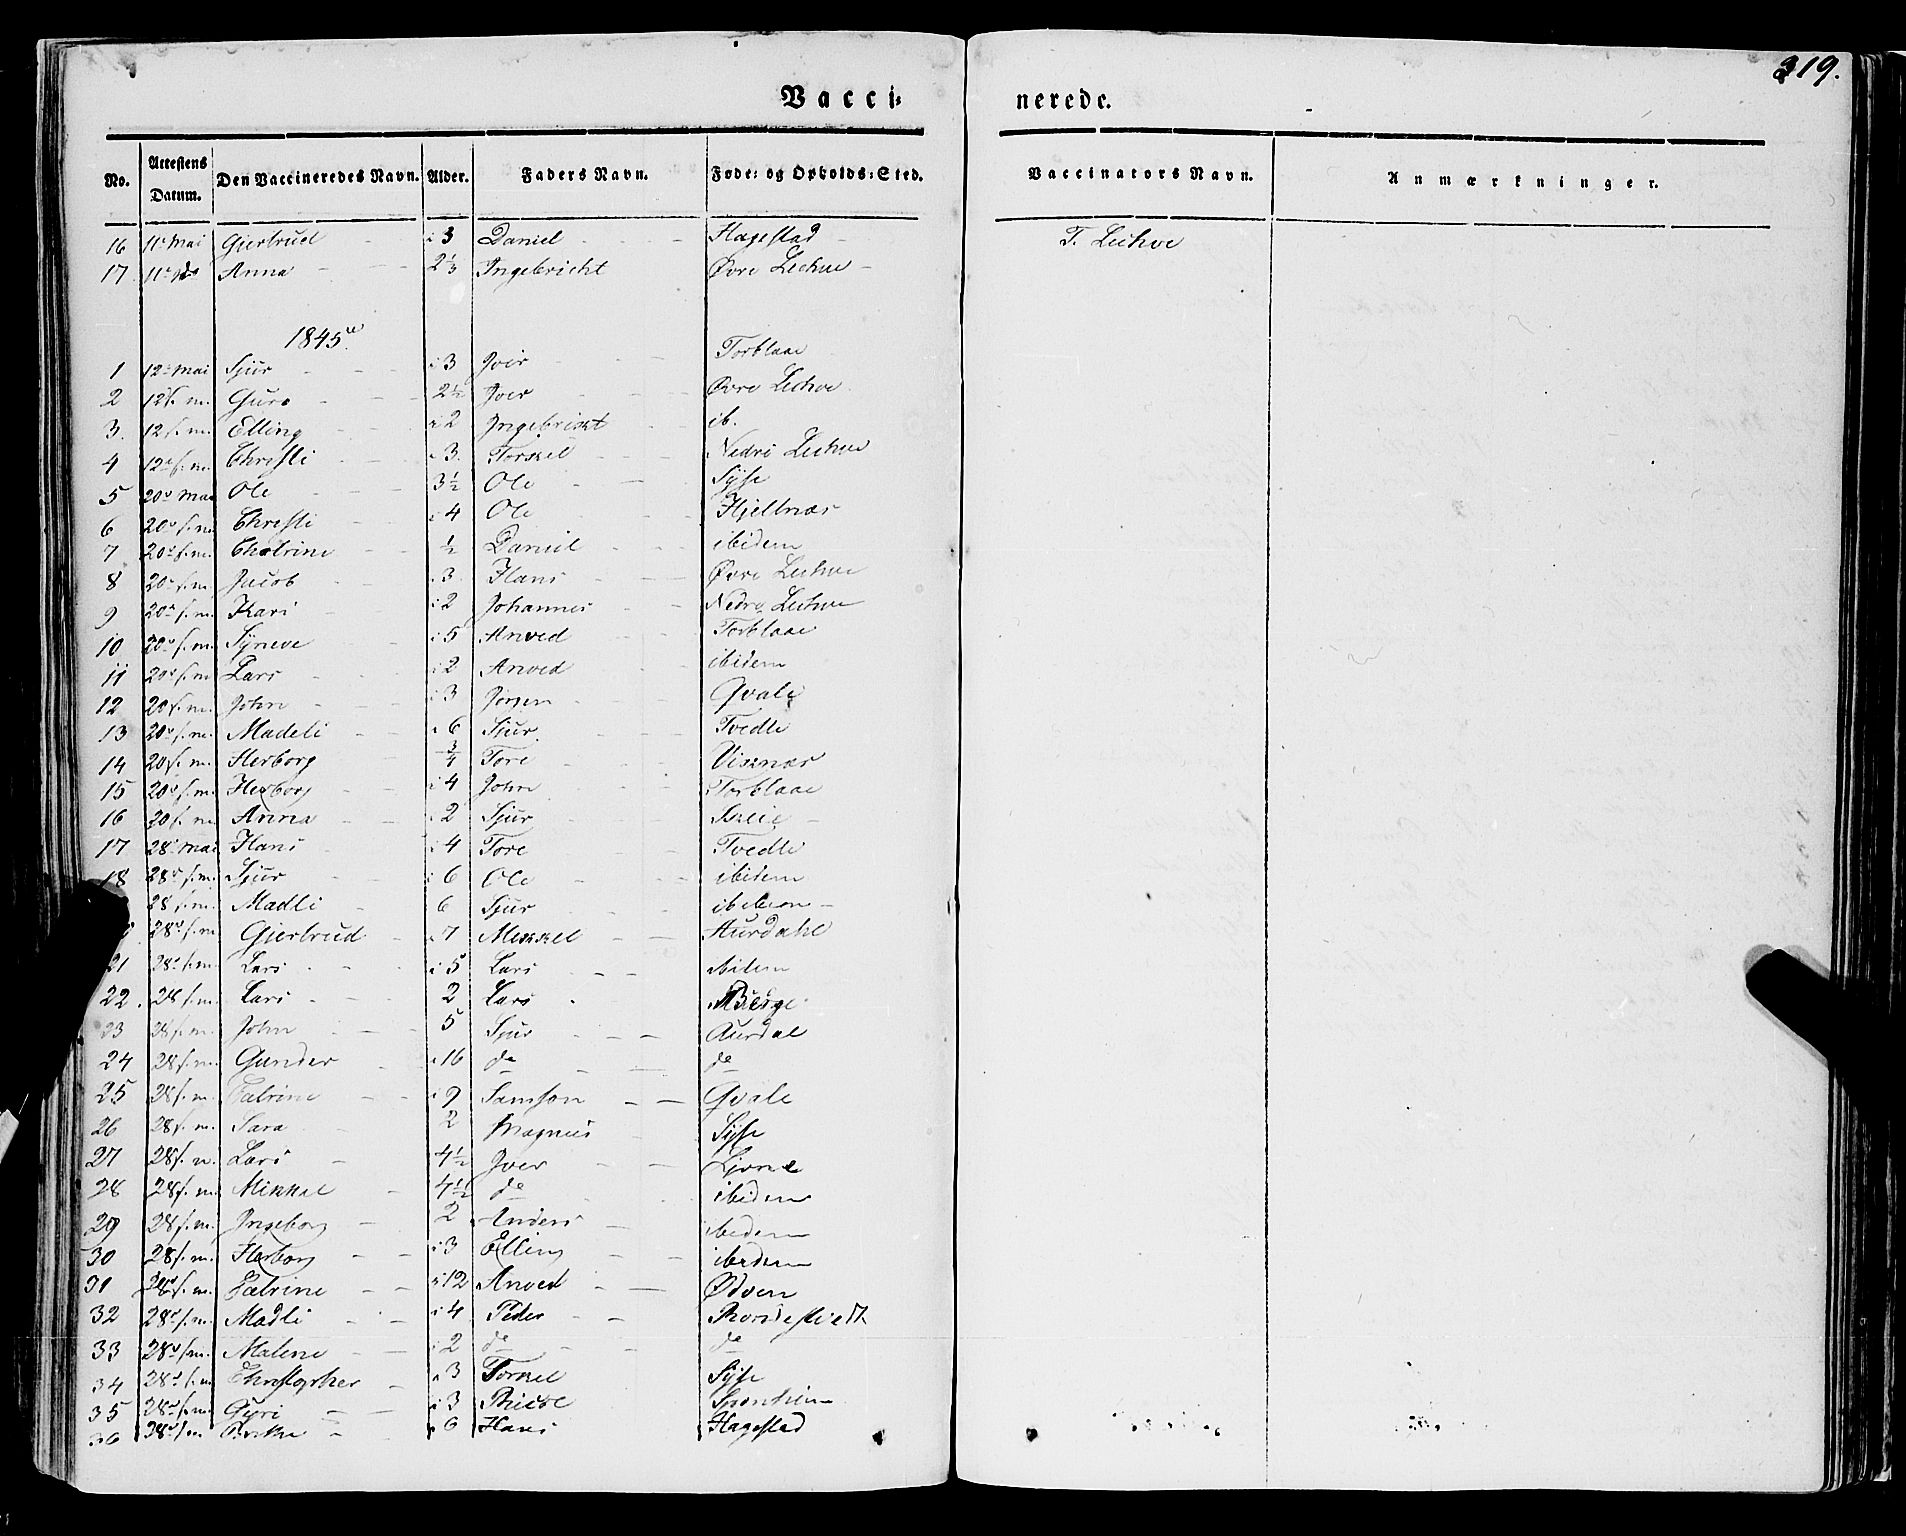 319.
Vacci- nerede.
No. Attestens Datum. Den Vaccineredes Navn. Alder. Faders Navn. Føde- og Opholds-Sted. Vaccinators Navn. Anmærkninger.
16 11 Mai Gjertrud - i 3 Daniel - Hagestad - T. Lekve
17 11 do Anna - 2⅓ Ingebricht Øvre Lekve -
1845
1 12 Mai Sjur - i 3 Iver - Torblaae
2 12 s. m. Guro - 2½ Iver - Øvre Lekve
3 12 s. m. Elling - i 2 Ingebrikt - ib.
4 12 s. m. Christi - 3 Torkel - Nedre Lekve
5 20 Mai Ole - 3½ Ole - Syse
6 20 s. m. Christi i 4 Ole - Hjeltnæs
7 20 s. m. Chatrine - ½ Daniel - ibidem
8 20 s. m. Jacob - 3 Hans - Øvre Lekve
9 20 s. m. Kari - i 2 Johannes - Nedre Lekve
10 20 s. m. Syneve - i 5 Anved - Torblaae
11 20 s. m. Lars - i 2 Anved - ibidem
12 20 s. m. John - i 3 - Qvale
13 20 s. m. Madeli - 6 Sjur - Tvedte
14 20 s. m. Herborg ¾ Tore - Visnæs
15 20 s. m. Herborg i 4 John - Torblaae
16 20 s. m. Anna - 2 Sjur - Skeie -
17 28 Mai Hans - i 4 Tore - Tvedte
18 28 s. m. Sjur - i 6 Ole - ibidem
28 s. m. Madli - 6 Sjur - ibidem -
28 s. m. Gjertrud - 7 Mikkel - Aurdahl
21 28 s. m. Lars - i 5 Lars - ibidem
22 28 s. m. Lars - 2 Lars - Berge
23 28 s. m. John - 5 Sjur - Aurdal
24 28 s. m. Gunder - 16 do - do
25 28 s. m. Catrine - i 9 Samson - Qvale
26 28 s. m. Sara - 2 Magnus - Syse
27 28 s. m. Lars - 4½ Iver - Ljone
28 28 s. m. Mikkel - 4½ do - ibidem
29 28 s. m. Ingeborg - 2 Anders - ibidem
30 28 s. m. Herborg - i 3 Elling - ibidem
31 28 s. m. Catrine - i 12 Anved - Ødven
32 28 s. m. Madli - i 4 Peder -
33 28 s. m. Malene - i 2 do - do
34 28 s. m. Christopher - 3 Torkel Syse
35 28 s. m. Guri - i 3
36 28 s. m. 6 Hans Hagestad